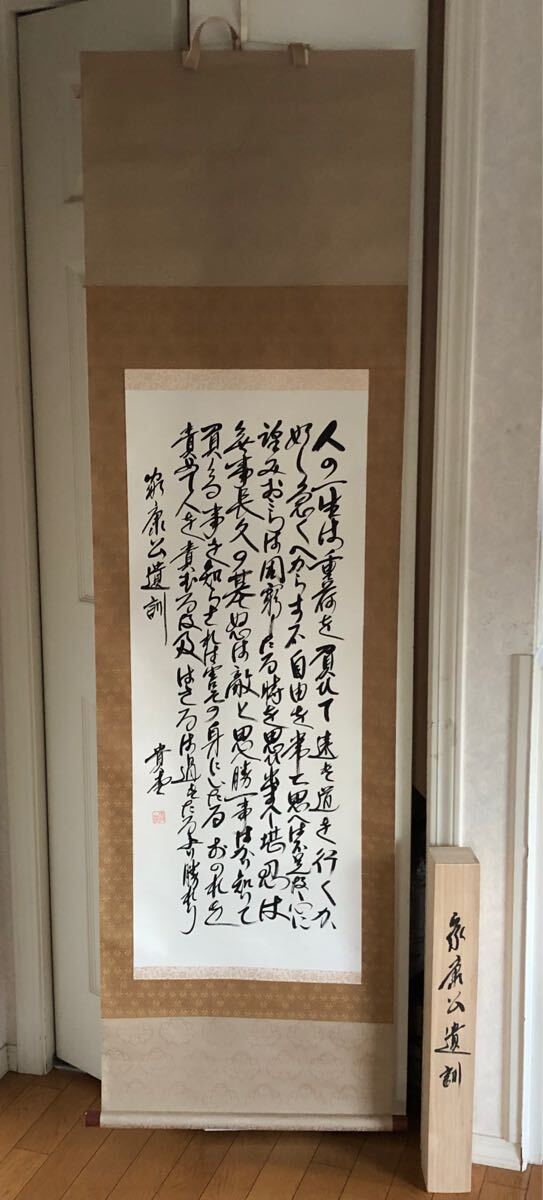 人の一生は重荷を負ひて遠き道を行くか
如し急くへからす不自由を常と思へは不足なし心に
望みおこらは困窮したる時を思ひ出すへし堪忍は
無事長久の基怒は敵と思へ勝事はかり知りて
負くる事を知らされは害其の身にいたるおのれを
責めて人を責むるな及はさるは過きたるより勝れり
家康公遺訓
家康公遺訓